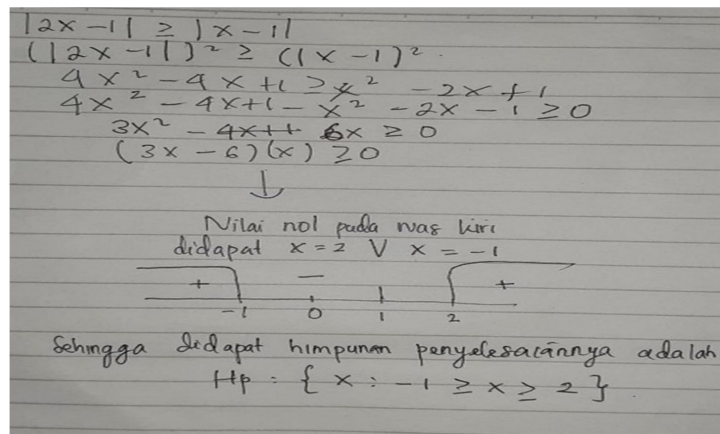 |2x-1| ≥ |x-1|
(|2x-1|)² ≥ (|x-1)².
4x² - 4x +1 ≥ x² - 2x + 1
4x² - 4x+1 - x² - 2x - 1 ≥ 0
3x² - 6x ≥ 0
(3x - 6)(x) ≥ 0
↓
Nilai nol pada ruas kiri
didapat x = 2 V x = -1
+ - +
-1 0 1 2
Sehingga didapat himpunan penyelesaiannya adalah
Hp = { x : -1 ≥ x ≥ 2 }